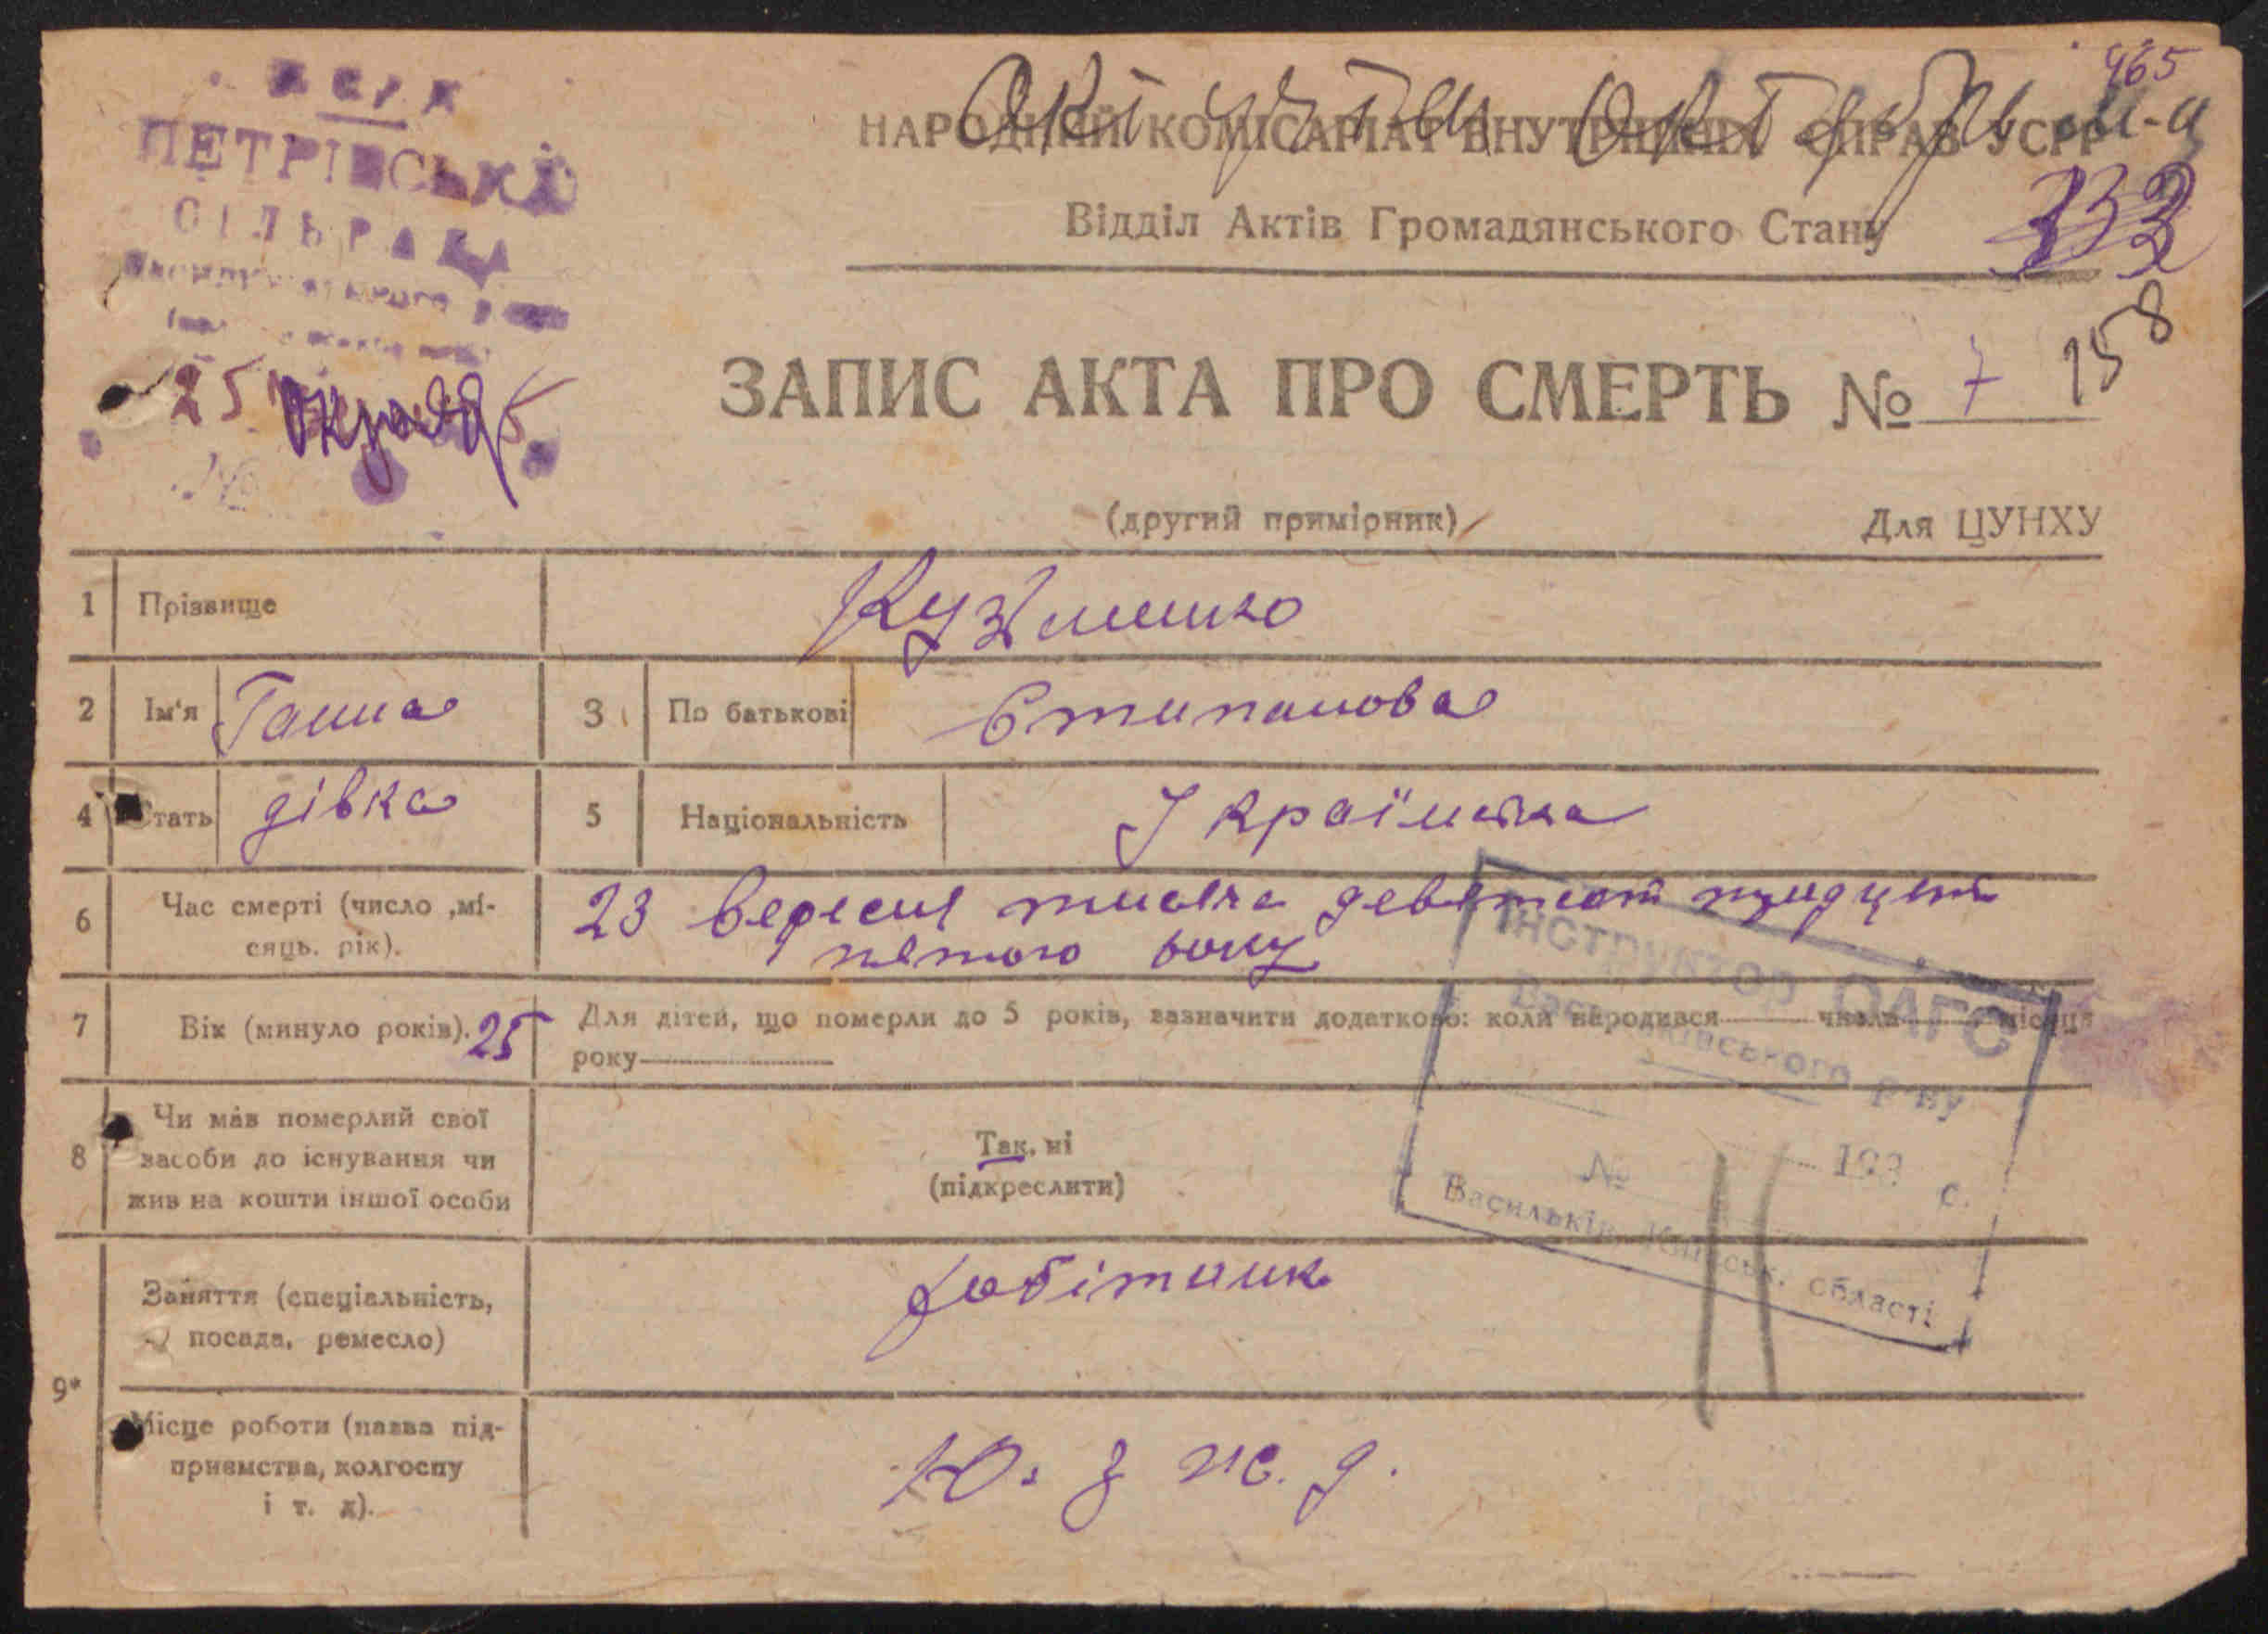 465
НАРОДНИЙ КОМІСАРІАТ ВНУТРІШНІХ СПРАВ УСРР
Відділ Актів Громадянського Стану
333
ПЕТРІВСЬКА
СІЛЬРАДА
25
№
ЗАПИС АКТА ПРО СМЕРТЬ № 7 158
(другий примірник)
Для ЦУНХУ
1 Прізвище Кузьменко
2 Ім'я Ганна 3 По батькові Стипанова
4 Стать дівка 5 Національність Українка
6 Час смерті (число ,мі-
сяць. рік).
23 вересня тисяча девятсот тридцят
пятого року
7 Вік (минуло років). 25 Для дітей, що померли до 5 років, зазначити додатково: коли народився числа місяця
року
8 Чи мав померлий свої
засоби до існування чи
жив на кошти іншої особи
Так, ні
(підкреслити)
ІНСТРУКТОР ОАГС
Васильківського р-ну
№ 193 с.
Васильків, Київськ. області
9* Заняття (спеціальність,
посада, ремесло)
робітник
Місце роботи (назва під-
приємства, колгоспу
і т. д).
Ю. З ж. д.